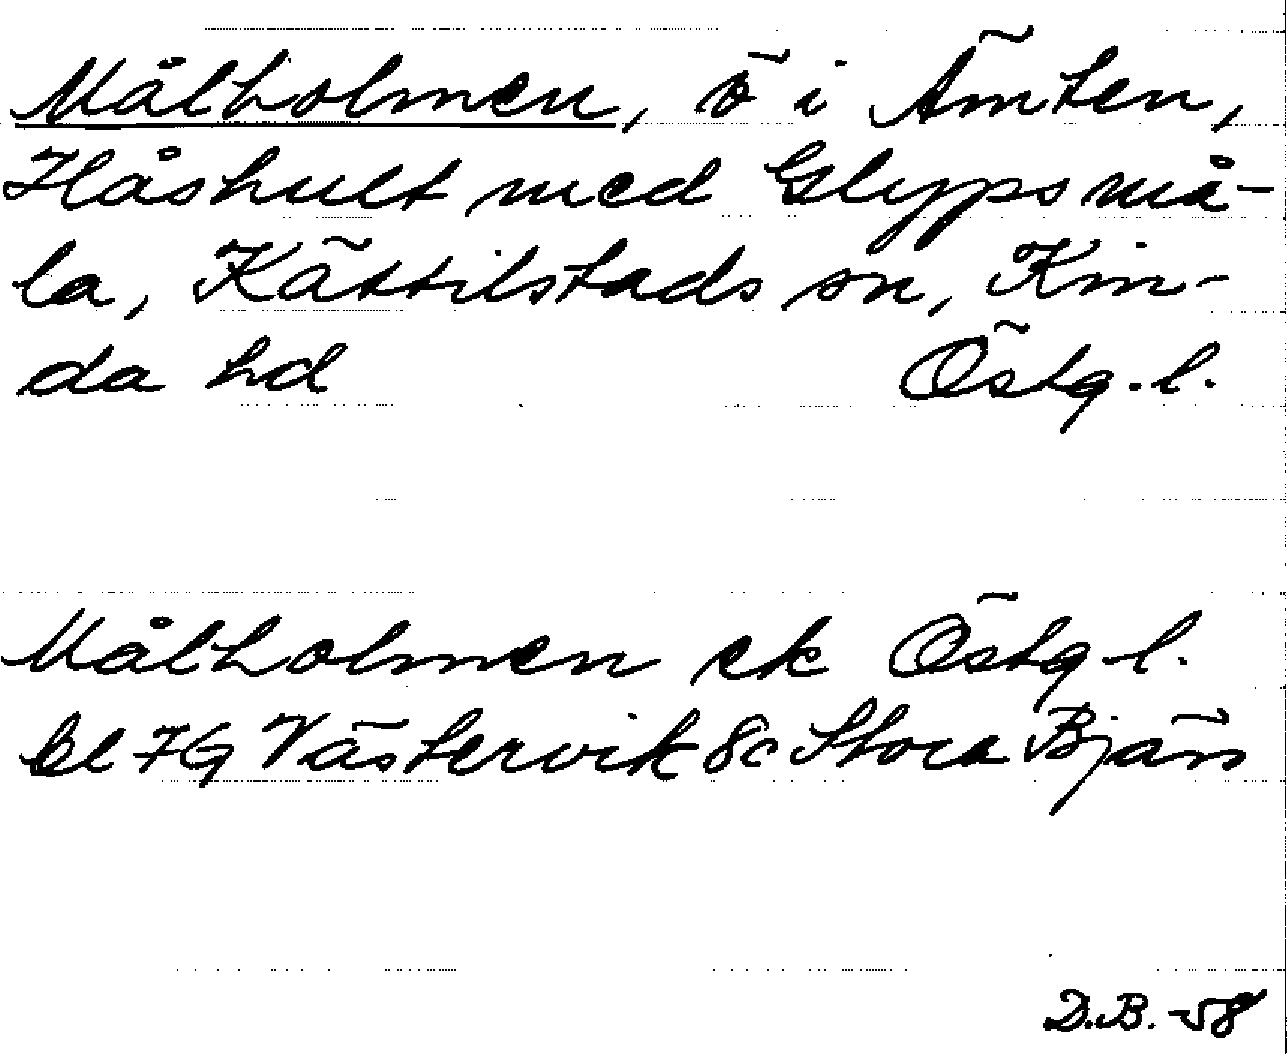 Målholmen, ö i Ämten,
Håshult med Glypsmå-
la, Kättilstads sn, Kin-
da hd Östg.l.
Målholmen ek Östg.l.
bl 7G Västervik 8c Stora Bjärs
D.B. -58